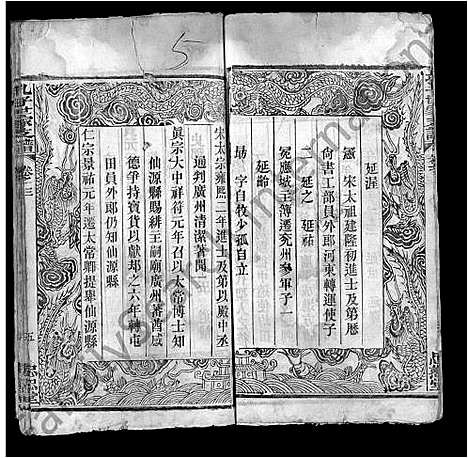 延渥
憲 宋太祖建隆初進士及第歷
尙書工部員外郎河東轉運使子
二 延之 延祐
冕應城王簿遷兖州參軍子一
延齡
勗 字自牧少孤自立
宋太宗雍熙二年進士及第以殿中丞
通判廣州清潔著聞
眞宗大中祥符元年召以太常博士知
仙源縣賜緋王祠廟廣州蕃酋咸
德爭持寶貨以獻却之六年轉屯
田員外郎仍知仙源縣
仁宗景祐元年遷太常卿提舉仙源縣
卷三
五
5